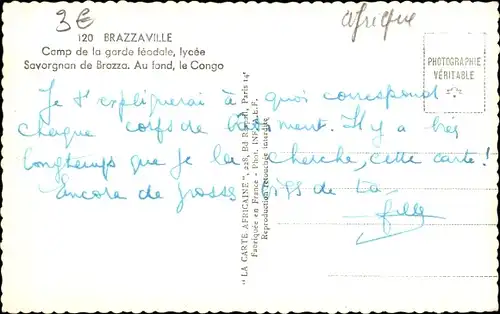 3€
afrique
120 BRAZZAVILLE
Camp de la garde féodale, lycée
Savorgnan de Brazza. Au fond, le Congo
PHOTOGRAPHIE
VÉRITABLE
Je t'expliquerai à quoi correspond
chaque corps de bâtiment. Il y a très
longtemps que je la cherche, cette carte !
Encore de grosses bises de ta
fille
"LA CARTE AFRICAINE", 228, Bd Raspail, Paris 14e
Fabriquée en France - Photo. INFA A.E.F.
Reproduction retouchée interdite